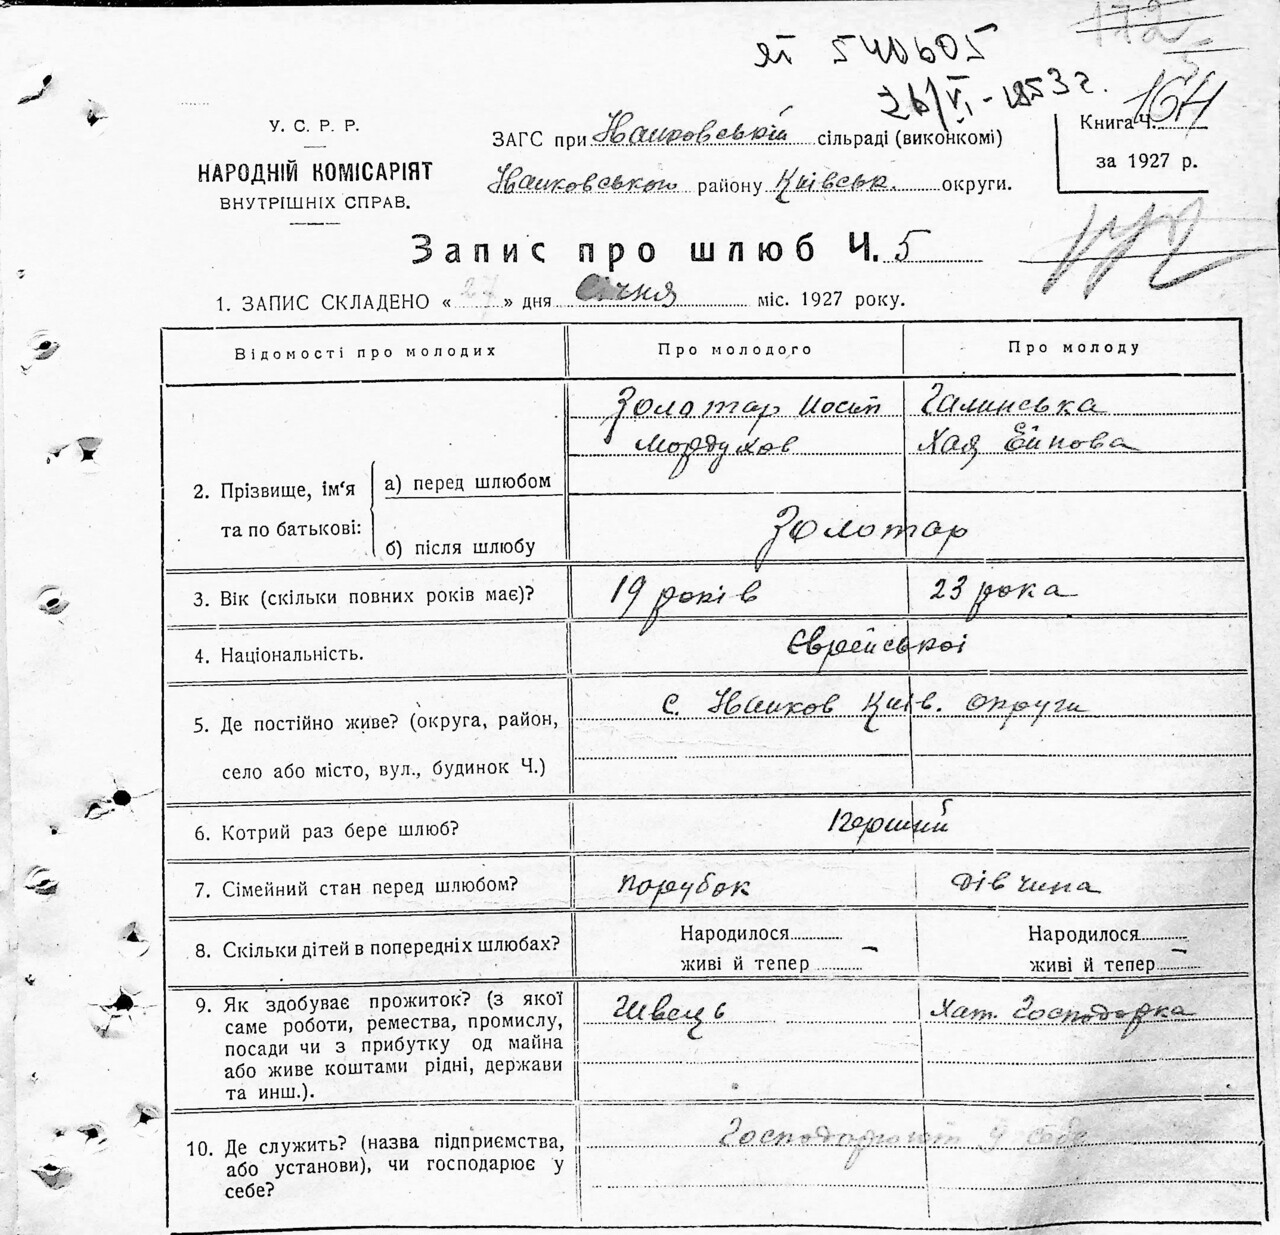 172
ЯТ 540605
26/VI-1953 г.
У. С. Р. Р.
НАРОДНІЙ КОМІСАРІЯТ
ВНУТРІШНІХ СПРАВ.
ЗАГС при Іванковській сільраді (виконкомі)
Іванковського району Київськ. округи.
Книга Ч. 164
за 1927 р.
Запис про шлюб Ч. 5
1. ЗАПИС СКЛАДЕНО « 27 » дня Січня міс. 1927 року.
Відомості про молодих Про молодого Про молоду
2. Прізвище, ім'я та по батькові:
а) перед шлюбом
Золотар Иосип Галинська
Мордухов Хая
б) після шлюбу
Золотар
3. Вік (скільки повних років має)? 19 років 23 рока
4. Національність. Єврейської
5. Де постійно живе? (округа, район, с. Іванков Київ. округи
село або місто, вул., будинок Ч.)
6. Котрий раз бере шлюб? Перший
7. Сімейний стан перед шлюбом? парубок дівчина
8. Скільки дітей в попередніх шлюбах? Народилося Народилося
живі й тепер – живі й тепер –
9. Як здобуває прожиток? (з якої Швець Хат. Господарка
саме роботи, ремества, промислу,
посади чи з прибутку од майна
або живе коштами рідні, держави
та инш.).
10. Де служить? (назва підприємства, Господарюют у себе
або установи), чи господарює у
себе?